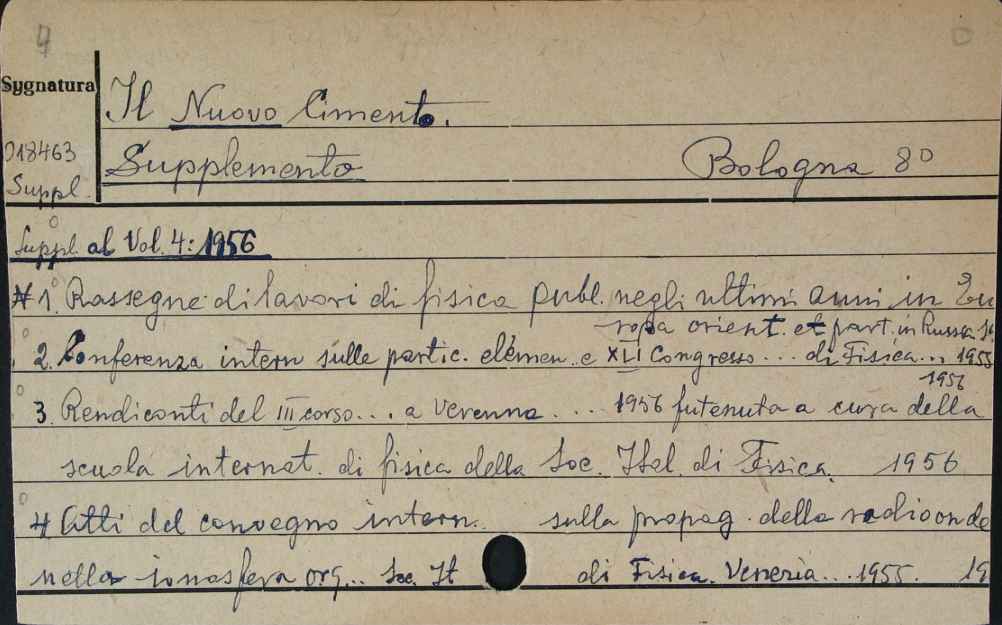 Sygnatura
018463
Suppl.
Il Nuovo Cimento.
Supplemento Bologna 8°
Suppl. al Vol. 4: 1956
1. Rassegne di lavori di fisica publ. negli ultimi anni in Eu
ropa orient. et part. in Russa
2. Conferenza intern sulle partic. elemen. e XLI Congresso... di Fisica... 1955
1956
3. Rendiconti del III corso... a Verenna.... 1956 futenuta a cura della
scuola internat. di fisica della Soc. Ital. di Fisica. 1956
4 Atti del convegno intern. sulla propag. della radioonde
nella ionosfera org... Soc. It di Fisica. Venezia... 1955. 19